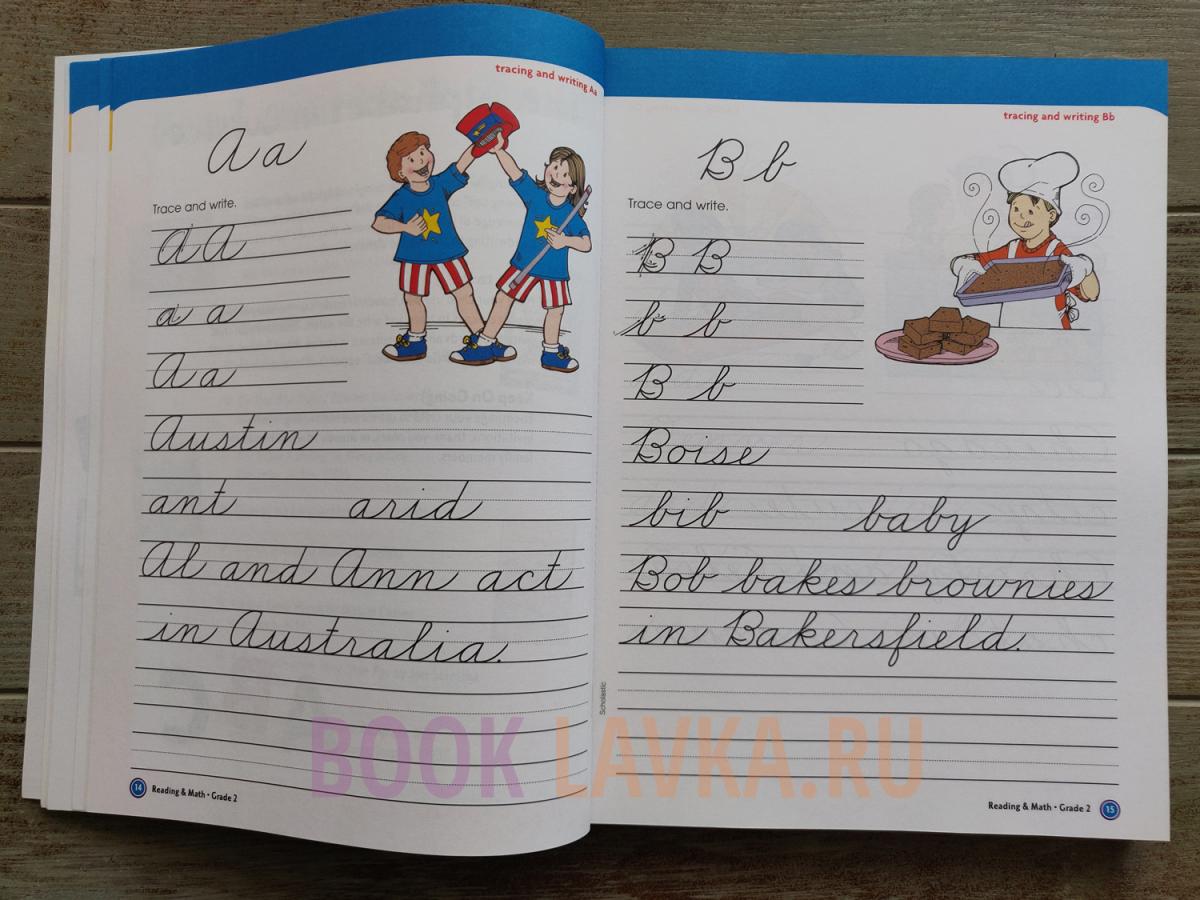 tracing and writing Aa
Aa
Trace and write.
A A
a a
Aa
Austin
ant arid
Al and Ann act
in Australia.
14 Reading & Math • Grade 2
tracing and writing Bb
Bb
Trace and write.
B B
b b
B b
Boise
bib baby
Bob bakes brownies
in Bakersfield.
Scholastic
Reading & Math • Grade 2 15
BOOK LAVKA.RU